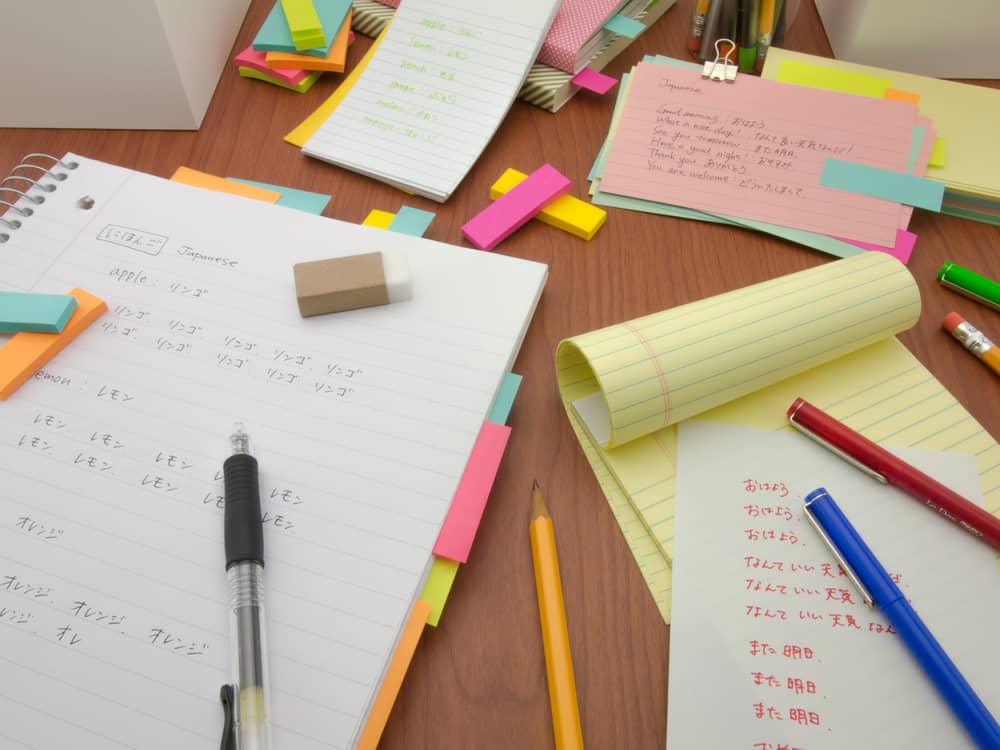 にほんご Japanese
apple : リンゴ
リンゴ. リンゴ. リンゴ. リンゴ. リンゴ
リンゴ. リンゴ. リンゴ リンゴ リンゴ
lemon : レモン
レモン レモン レモン レモン
レモン. レモン. レモン レモン
オレンジ
オレンジ. オレンジ. オレンジ
オレ
apple :
lemon : レモン
peach :
Japanese
Good morning : おはよう
What a nice day! : なんて良い天気なんだ!
See you tomorrow : また明日.
Have a good night! : おやすみ
Thank you : ありがとう
You are welcome : どういたしまして.
おはよう.
おはよう.
おはよう.
なんていい天気
なんていい天気
なんていい天気なん
また明日.
また明日.
また明日.